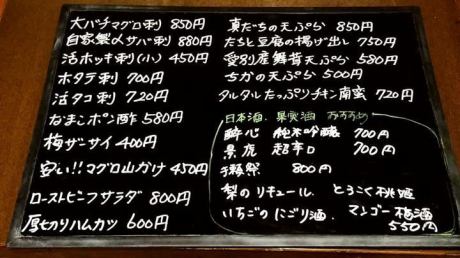 大バチマグロ刺 850円
自家製〆サバ刺 880円
活ホッキ刺(小) 450円
ホタテ刺 700円
活タコ刺 720円
たまこポン酢 580円
梅ザーサイ 400円
安い!!マグロ山かけ 450円
ローストビーフサラダ 800円
厚切りハムカツ 600円
真だちの天ぷら 850円
たちと豆腐の揚げ出し 750円
愛別産舞茸天ぷら 580円
ちかの天ぷら 500円
タルタルたっぷりチキン南蛮 720円
日本酒、果実酒
酔心 純米吟醸 700円
景虎 超辛口 700円
獺祭 800円
梨のリキュール、とろこく桃姫
いちごのにごり酒、マンゴー梅酒
550円